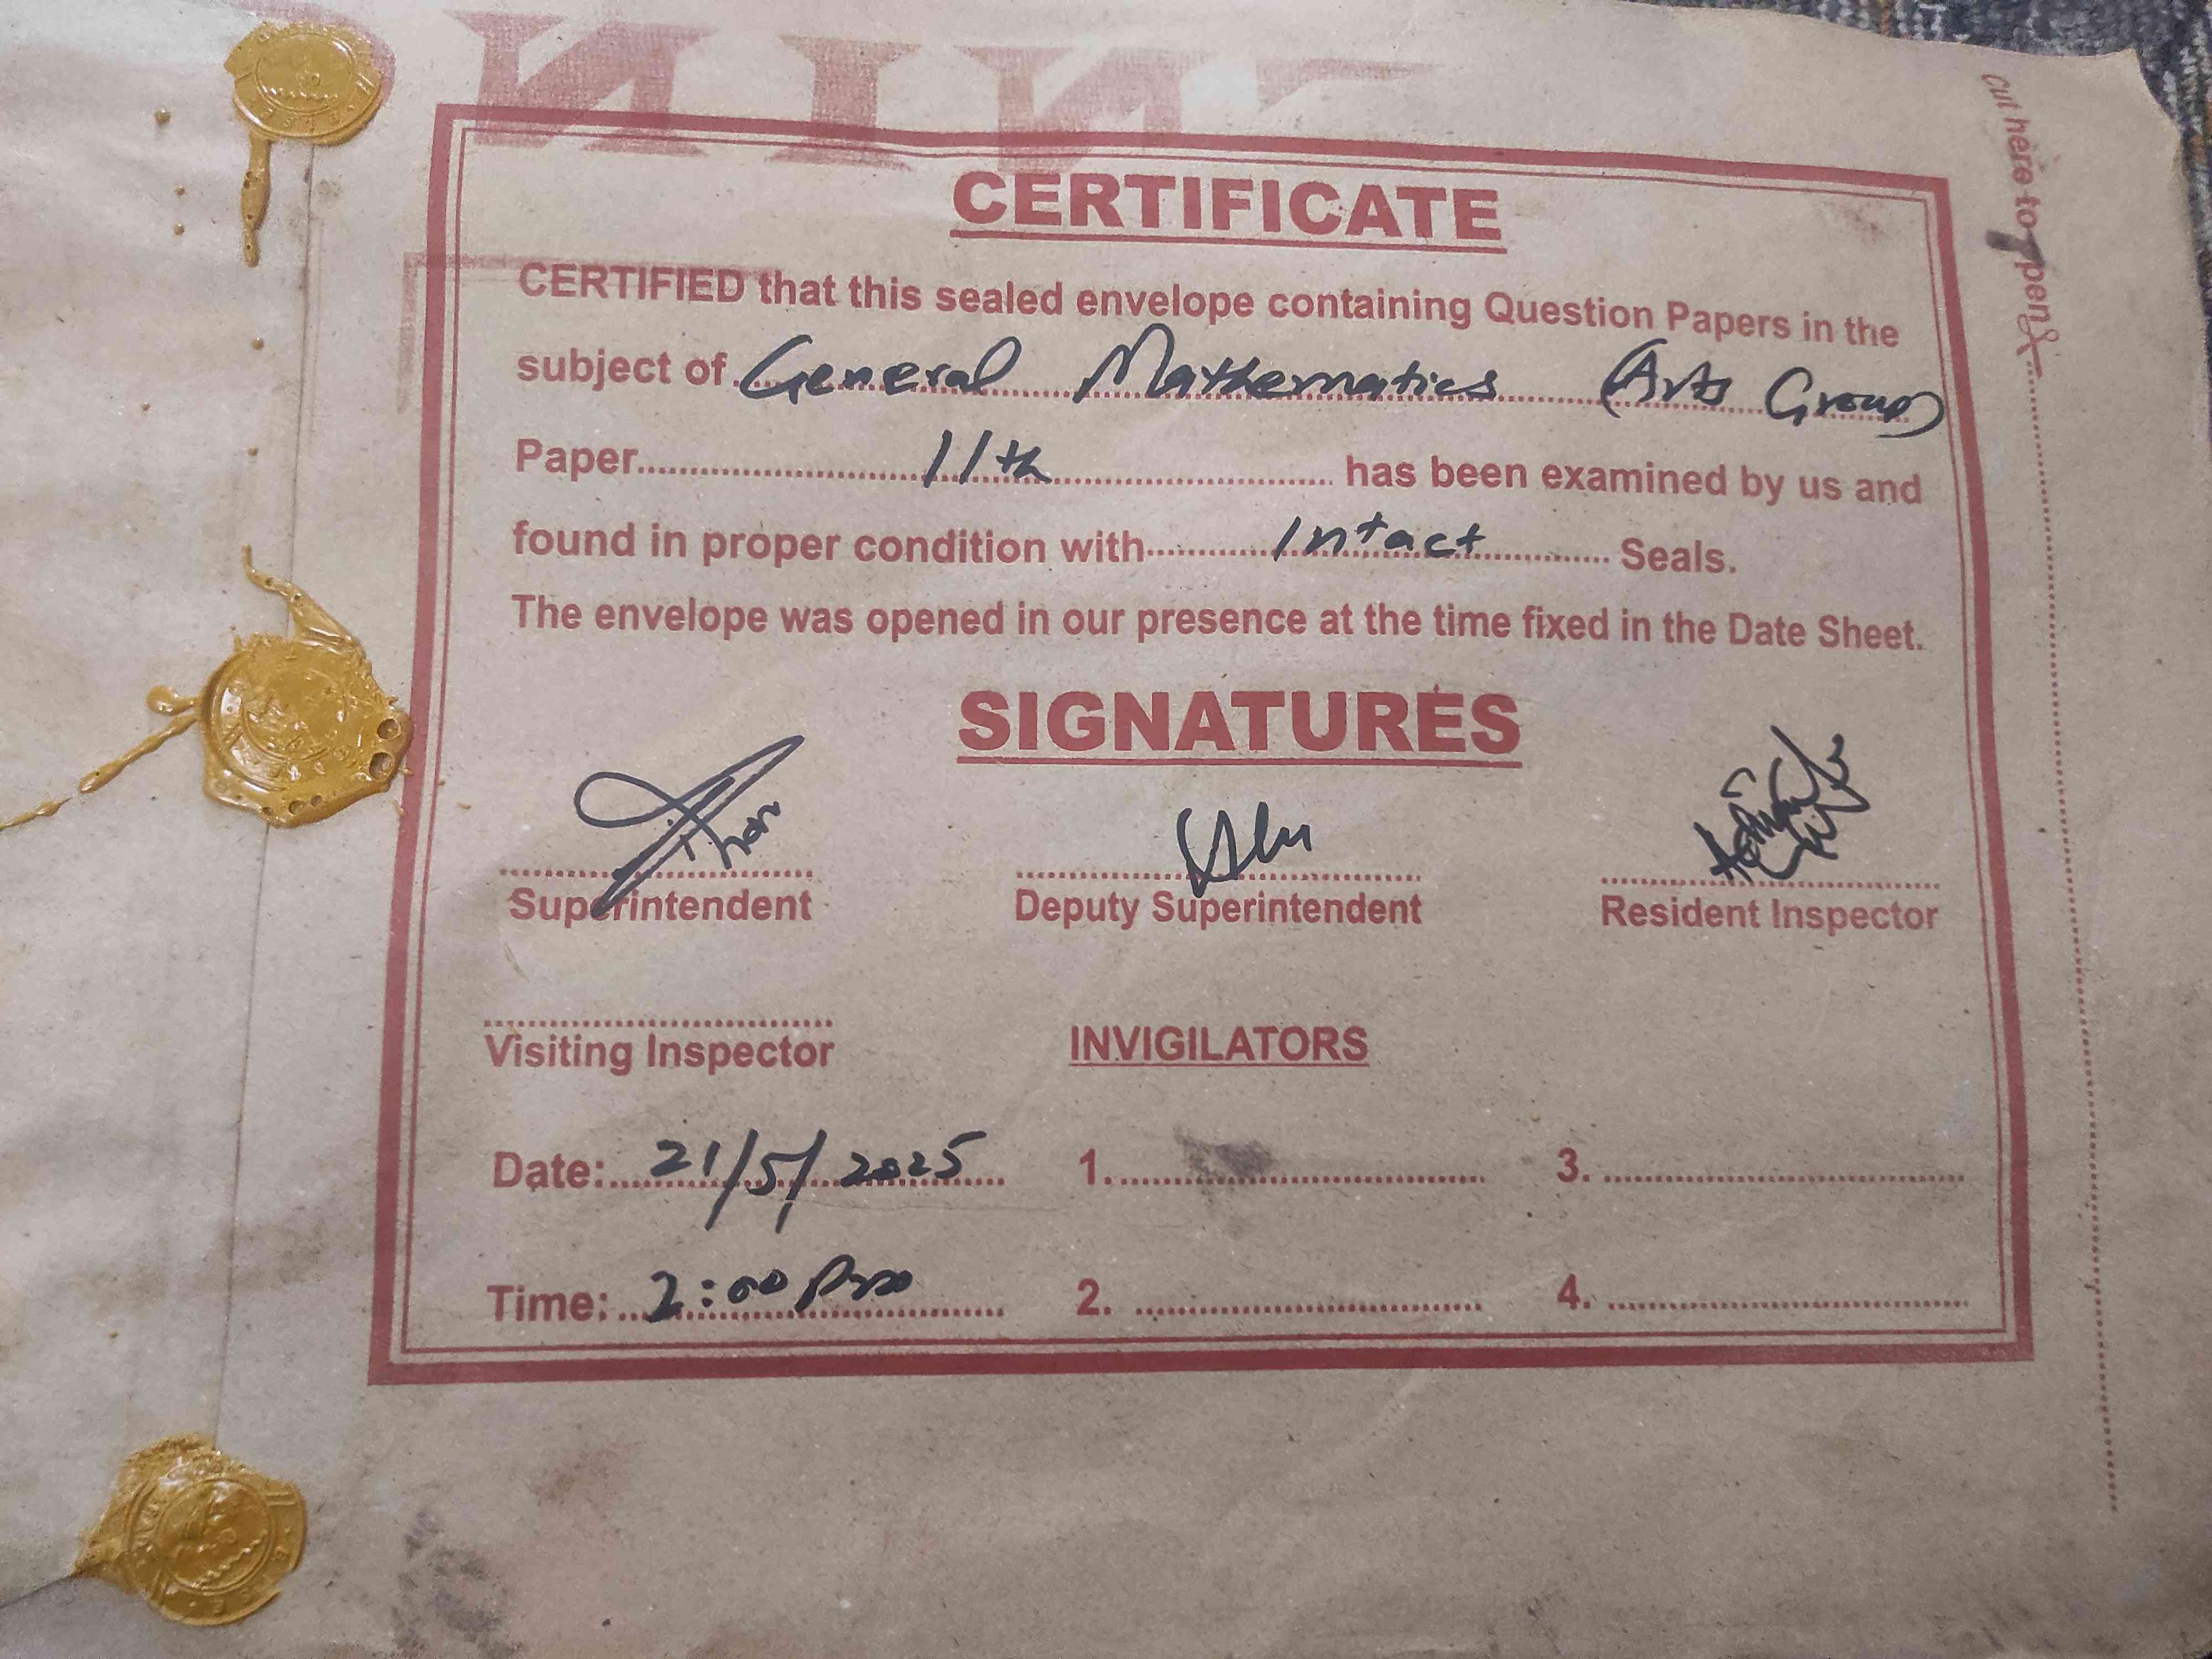 CERTIFICATE
CERTIFIED that this sealed envelope containing Question Papers in the
subject of General Mathematics (Arts Group)
Paper 11th has been examined by us and
found in proper condition with Intact Seals.
The envelope was opened in our presence at the time fixed in the Date Sheet.
SIGNATURES
Superintendent Deputy Superintendent Resident Inspector
Visiting Inspector INVIGILATORS
Date: 21/5/2025 1. 3.
Time: 2:00 Pm 2. 4.
cut here to open